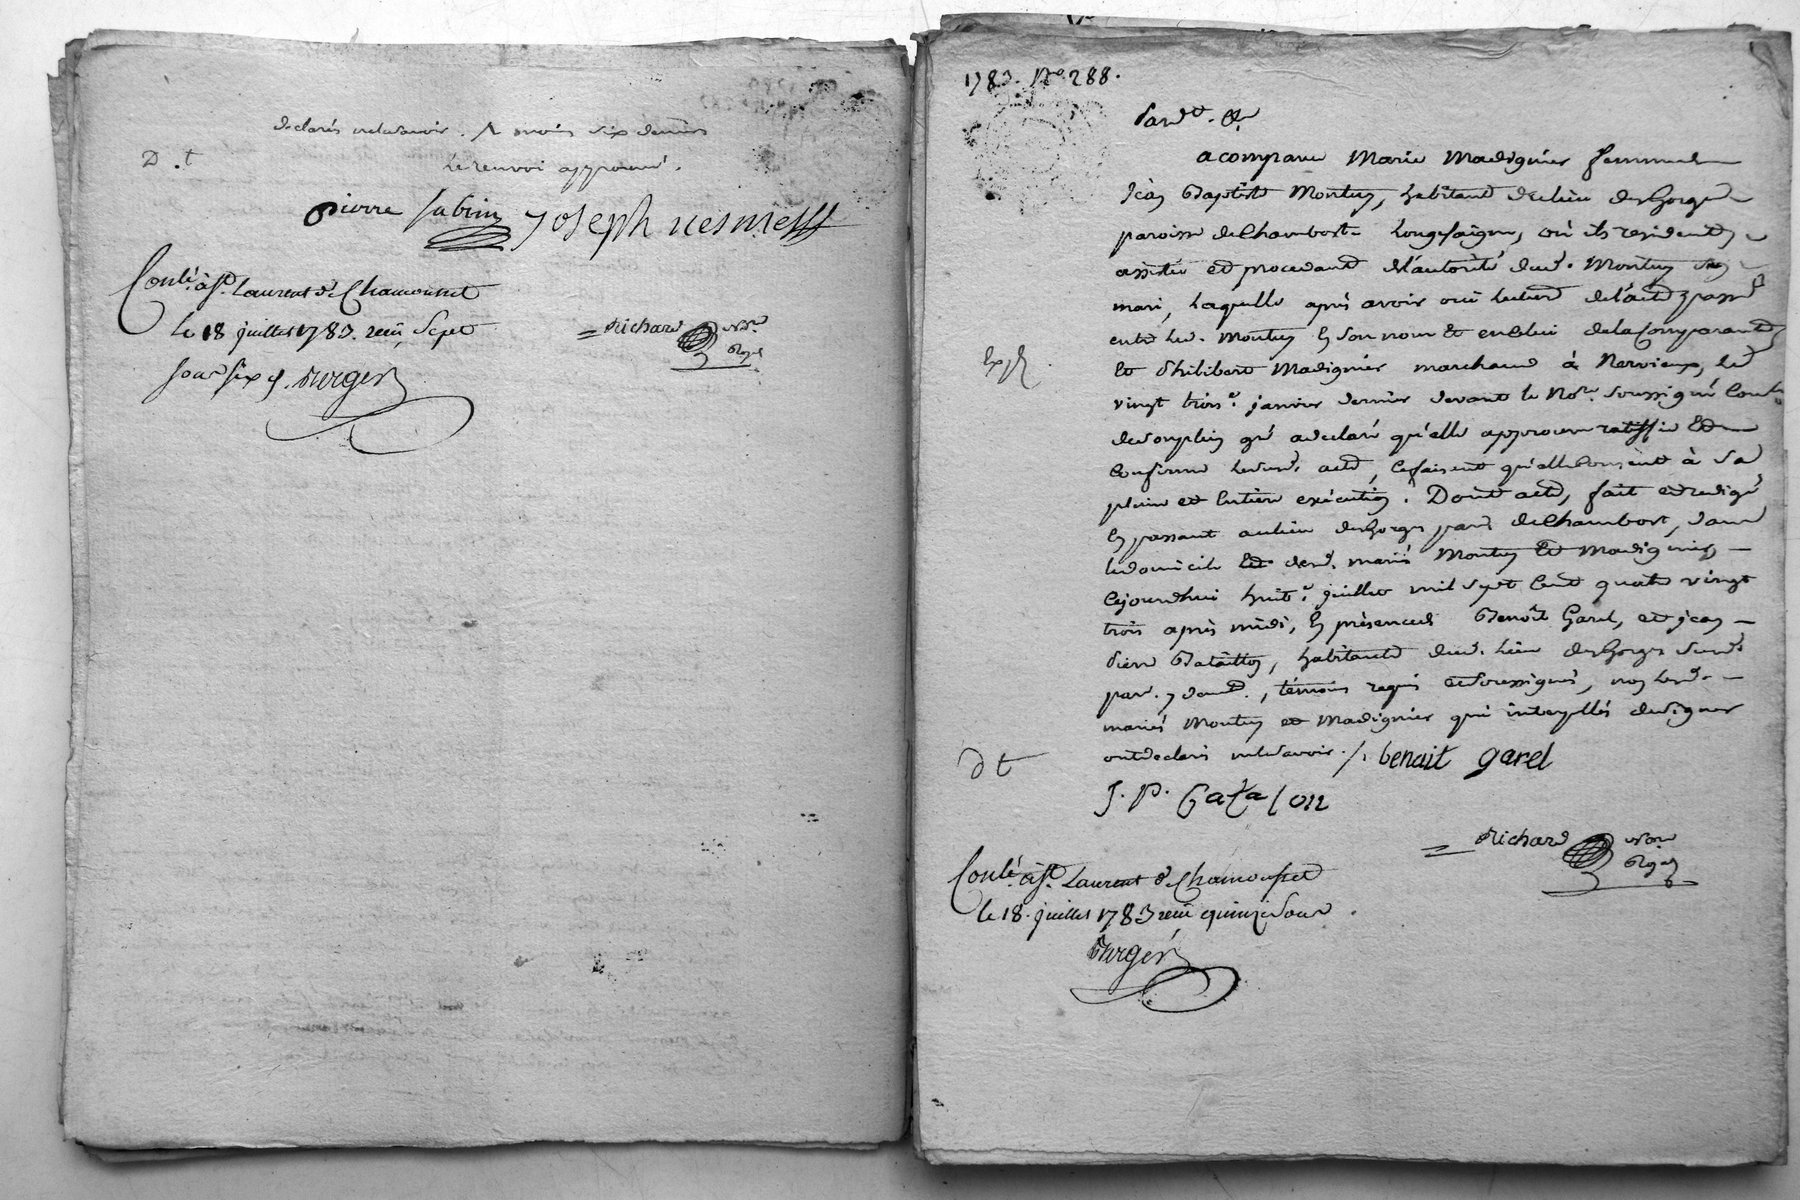 declarés ne le savoir. /. moins six deniers
D. t
le renvoi approuvé.
pierre fabrin joseph nesme
Conlé. à St. Laurent de Chamousset
le 18 juillet 1783. reçu, Sept
sous six d. Burger
= Richard Nore
Royal
1783. No. 288.
Pardt. &
a comparu Marie Madignier femme de
Jean Baptiste Montuy, habitant du lieu des Gorges
paroisse de Chambost-Longesaigne, où ils resident,
assistée et procedant de l'autorité dud. Montuy son
mari, laquelle après avoir ouï lecture de l'acte passé
entre led. Montuy en son nom et en celui de la Comparante
Exp
et Philibert Madignier marchand à Nervieux, le
vingt trois e. janvier dernier devant le Nore. soussigné
de son plein gré a declaré qu'elle approuve ratiffie et
confirme led. acte, ce faisant qu'elle consent à sa
pleine et entiere exécution. Dont acte, fait et redigé
en passant au lieu des Gorges par. de Chambost, dans
le domicile desd. mariés Montuy et Madignier,
cejourdhui huit e. juillet mil sept cent quatre vingt
trois après midi, en présence de Benoît Garel, et jean
Pierre Bataillon, habitants dud. lieu des Gorges susd.
par. y dem. , témoins requis et soussignés, non lesd.
mariés Montuy et Madignier qui interpellés de signer
ont declarés ne le savoir. /. benait garel
D t
J. P. Batalon
= Richard Nore
Royal
Conlé. à St. Laurent de Chamousset
le 18. juillet 1783 reçu quinze sous.
Burger